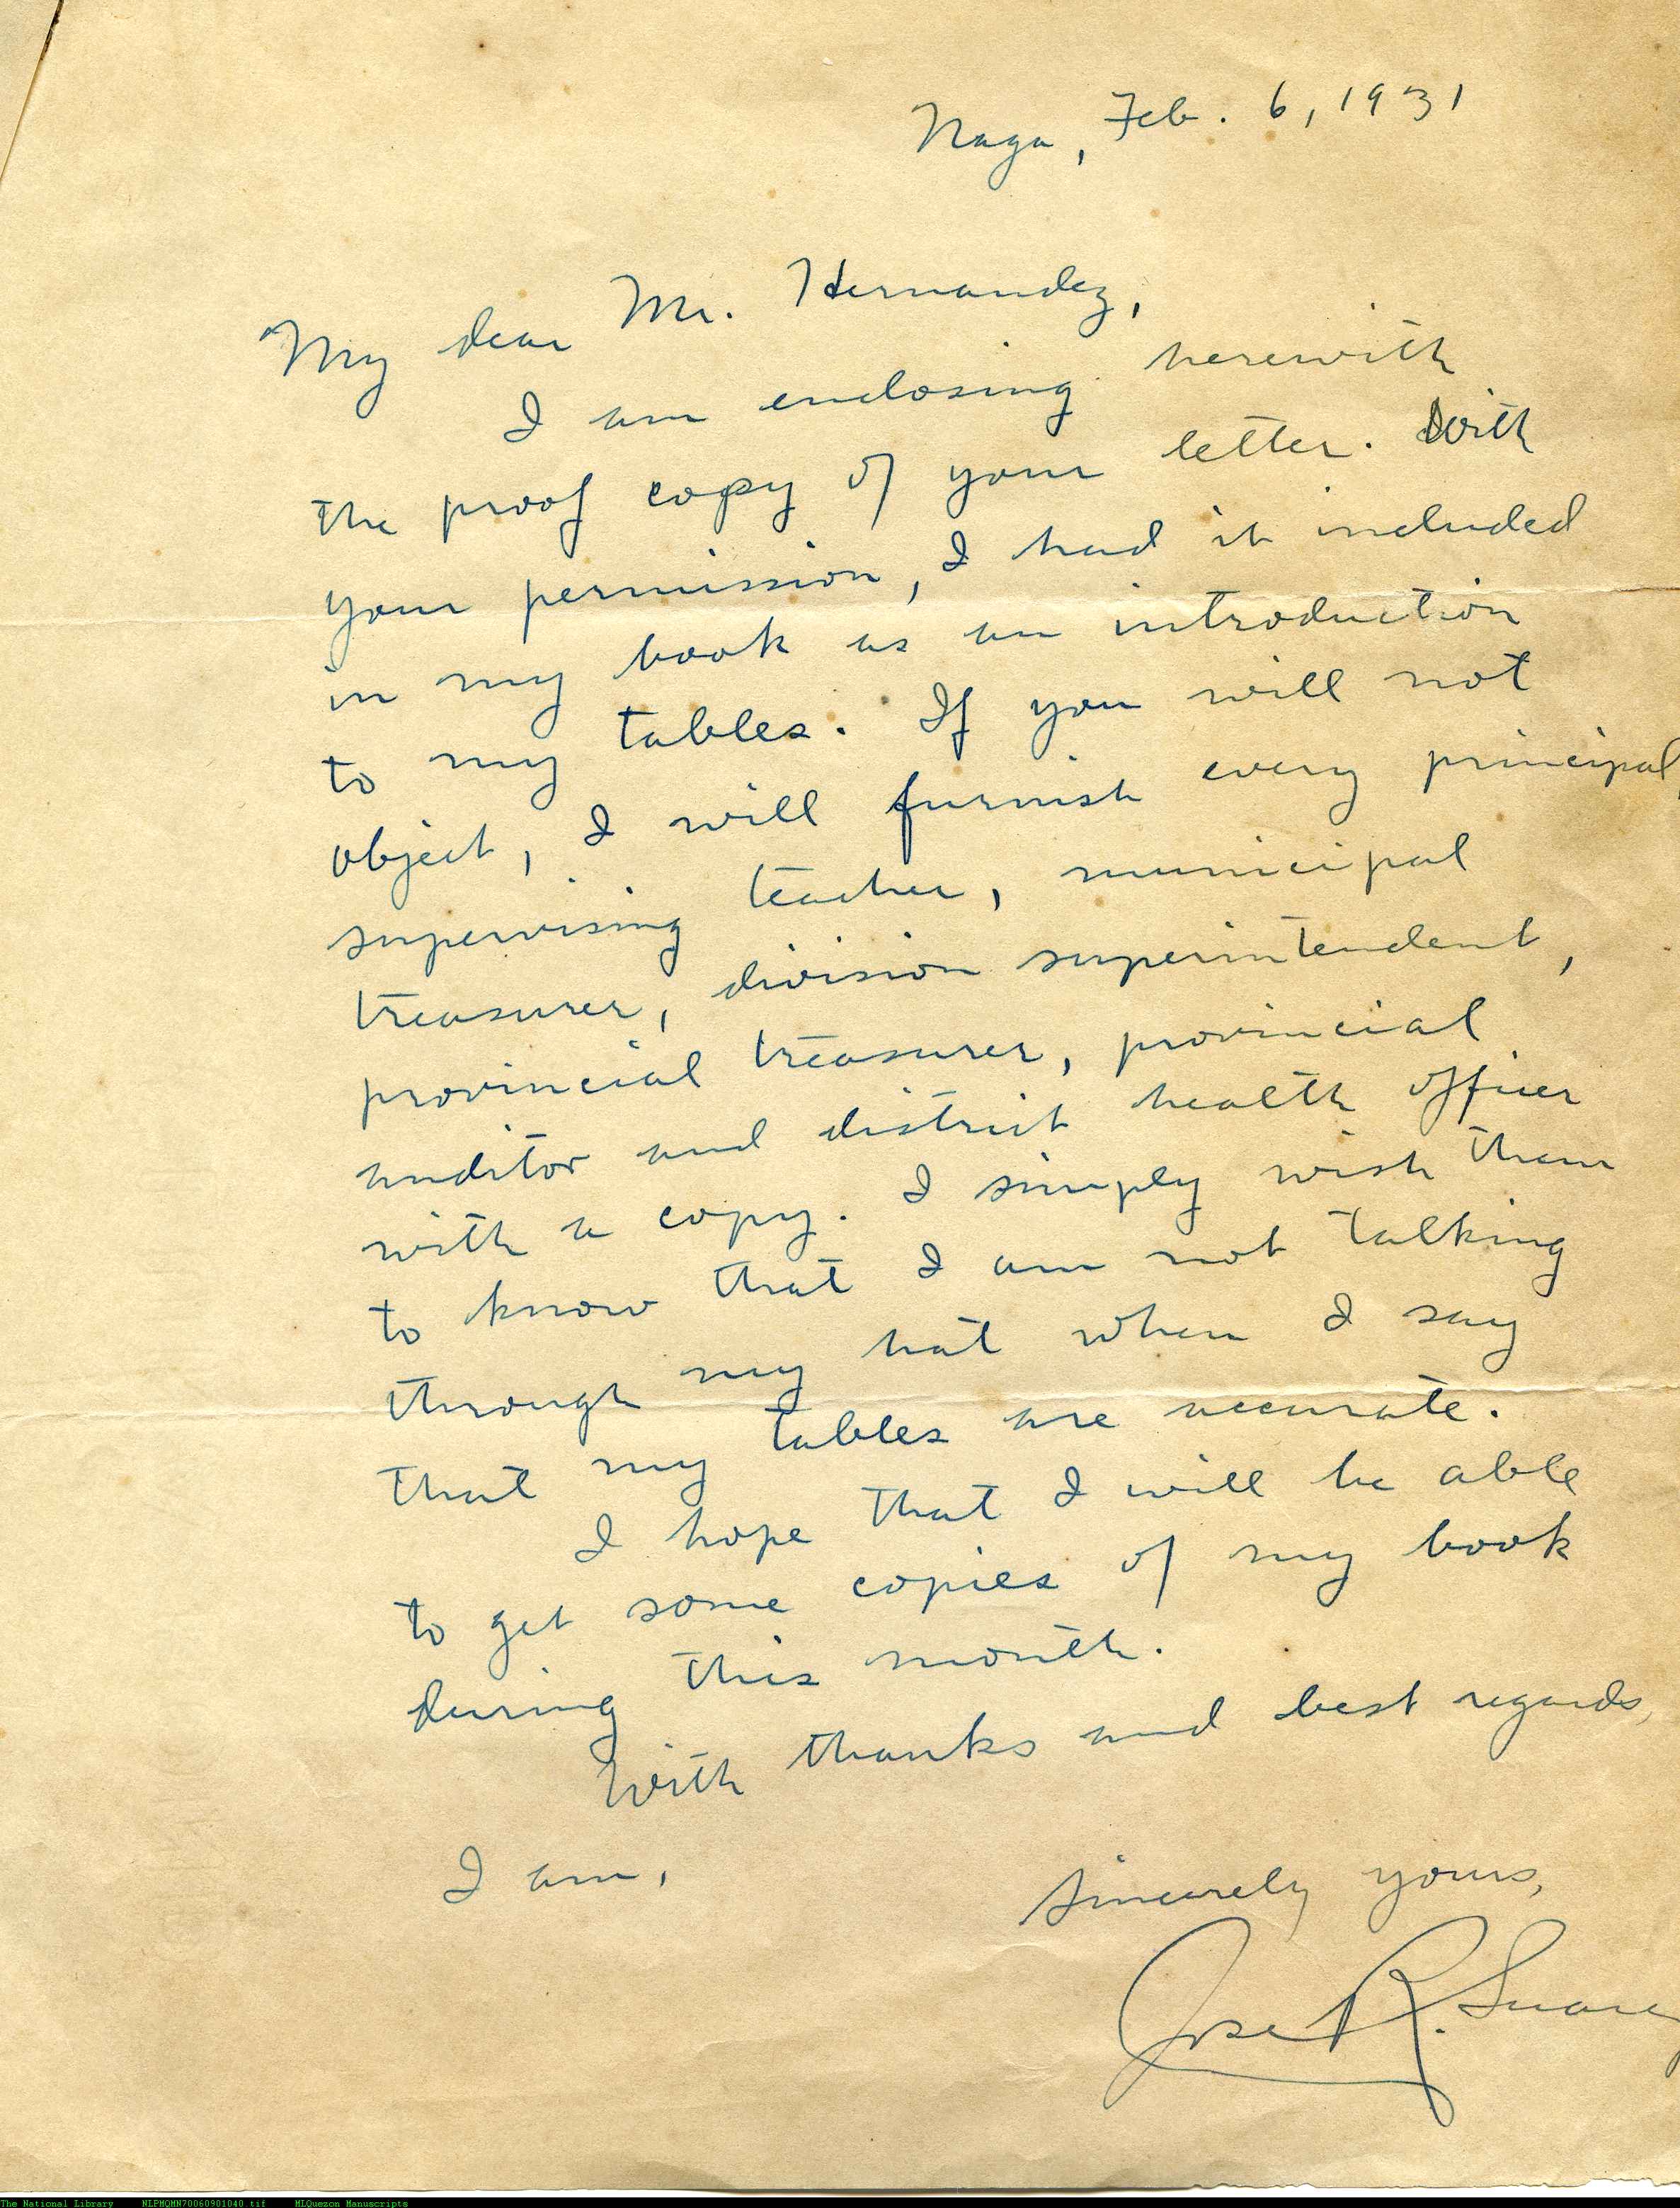 Naga, Feb. 6, 1931
My dear Mr. Hernandez,
I am enclosing herewith
the proof copy of your letter. With
your permission, I had it included
in my book as an introduction
to my tables. If you will not
object, I will furnish every principal,
supervising teacher, municipal
treasurer, division superintendent,
provincial treasurer, provincial
auditor and district health officer
with a copy. I simply wish them
to know that I am not talking
through my hat when I say
that my tables are accurate.
I hope that I will be able
to get some copies of my book
during this month.
With thanks and best regards,
I am,
Sincerely yours,
Jose R. Suarez
The National Library NLPMQMN70060901040.tif MLQuezon Manuscripts